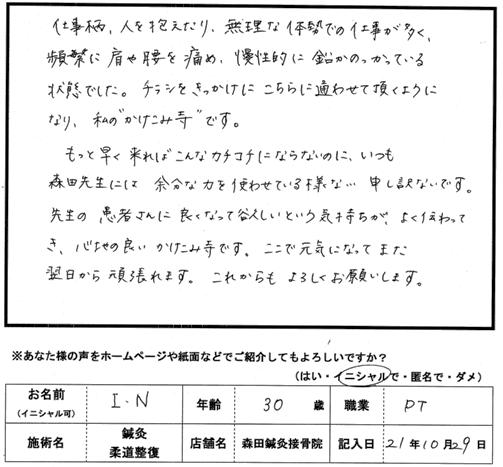 仕事柄、人を抱えたり、無理な体勢での仕事が多く、
頻繁に肩や腰を痛め、慢性的に鉛がのっかっている
状態でした。チラシをきっかけにこちらに通わせて頂くように
なり、私の"かけこみ寺"です。
もっと早く来ればこんなカチコチにならないのに、いつも
森田先生には余分な力を使わせている様な… 申し訳ないです。
先生の患者さんに良くなって欲しいという気持ちが、よく伝わって
き、心地の良いかけこみ寺です。ここで元気になってまた
翌日から頑張れます。これからもよろしくお願いします。
※あなた様の声をホームページや紙面などでご紹介してもよろしいですか？
（はい・イニシャルで・匿名で・ダメ）
お名前 （イニシャル可） I.N 年齢 30 歳 職業 PT
施術名 鍼灸 柔道整復 店舗名 森田鍼灸接骨院 記入日 21年10月29日